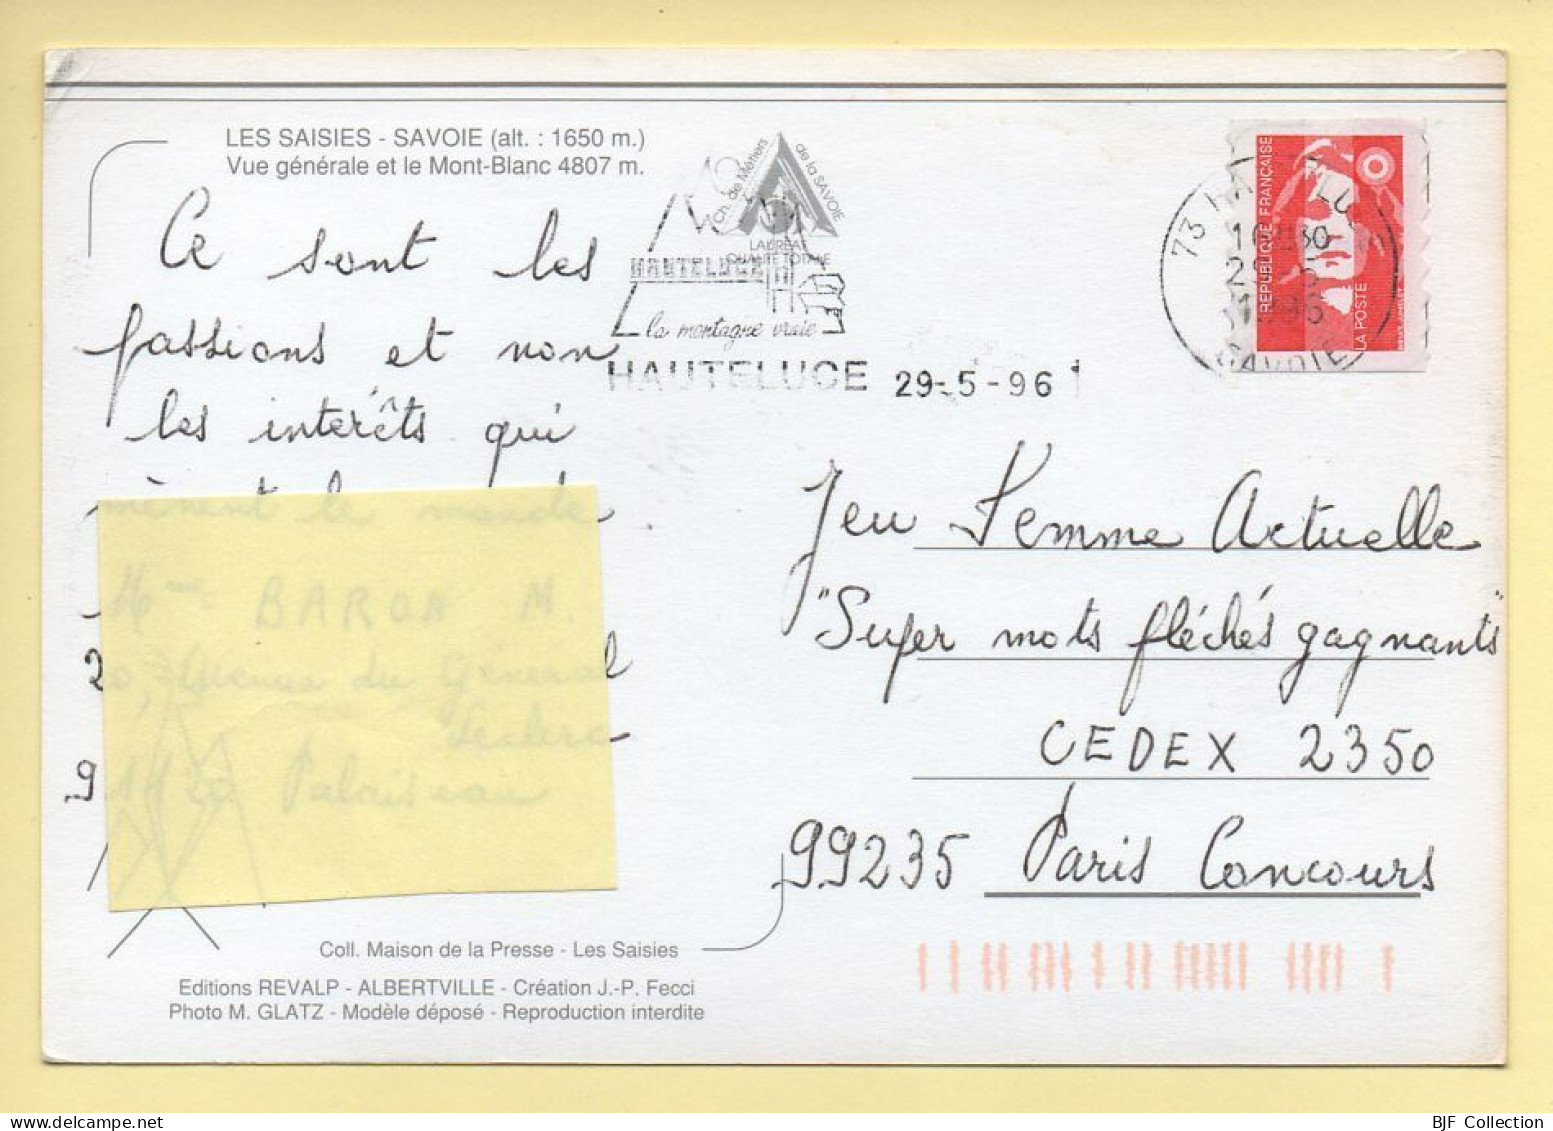 LES SAISIES - SAVOIE (alt. : 1650 m.)
Vue générale et le Mont-Blanc 4807 m.
Ce sont les
passions et non
les intérêts qui
mènent le monde
Coll. Maison de la Presse - Les Saisies
Editions REVALP - ALBERTVILLE - Création J.-P. Fecci
Photo M. GLATZ - Modèle déposé - Reproduction interdite
Ch. de Métiers de la SAVOIE
LAURÉAT
QUALITÉ TOTALE
HAUTELUCE
la montagne vraie
HAUTELUCE 29-5-96
RÉPUBLIQUE FRANÇAISE
LA POSTE
73
1996
SAVOIE
Jeu Femme Actuelle
"Super mots fléchés gagnants"
CEDEX 2350
99235 Paris Concours
BJF Collection